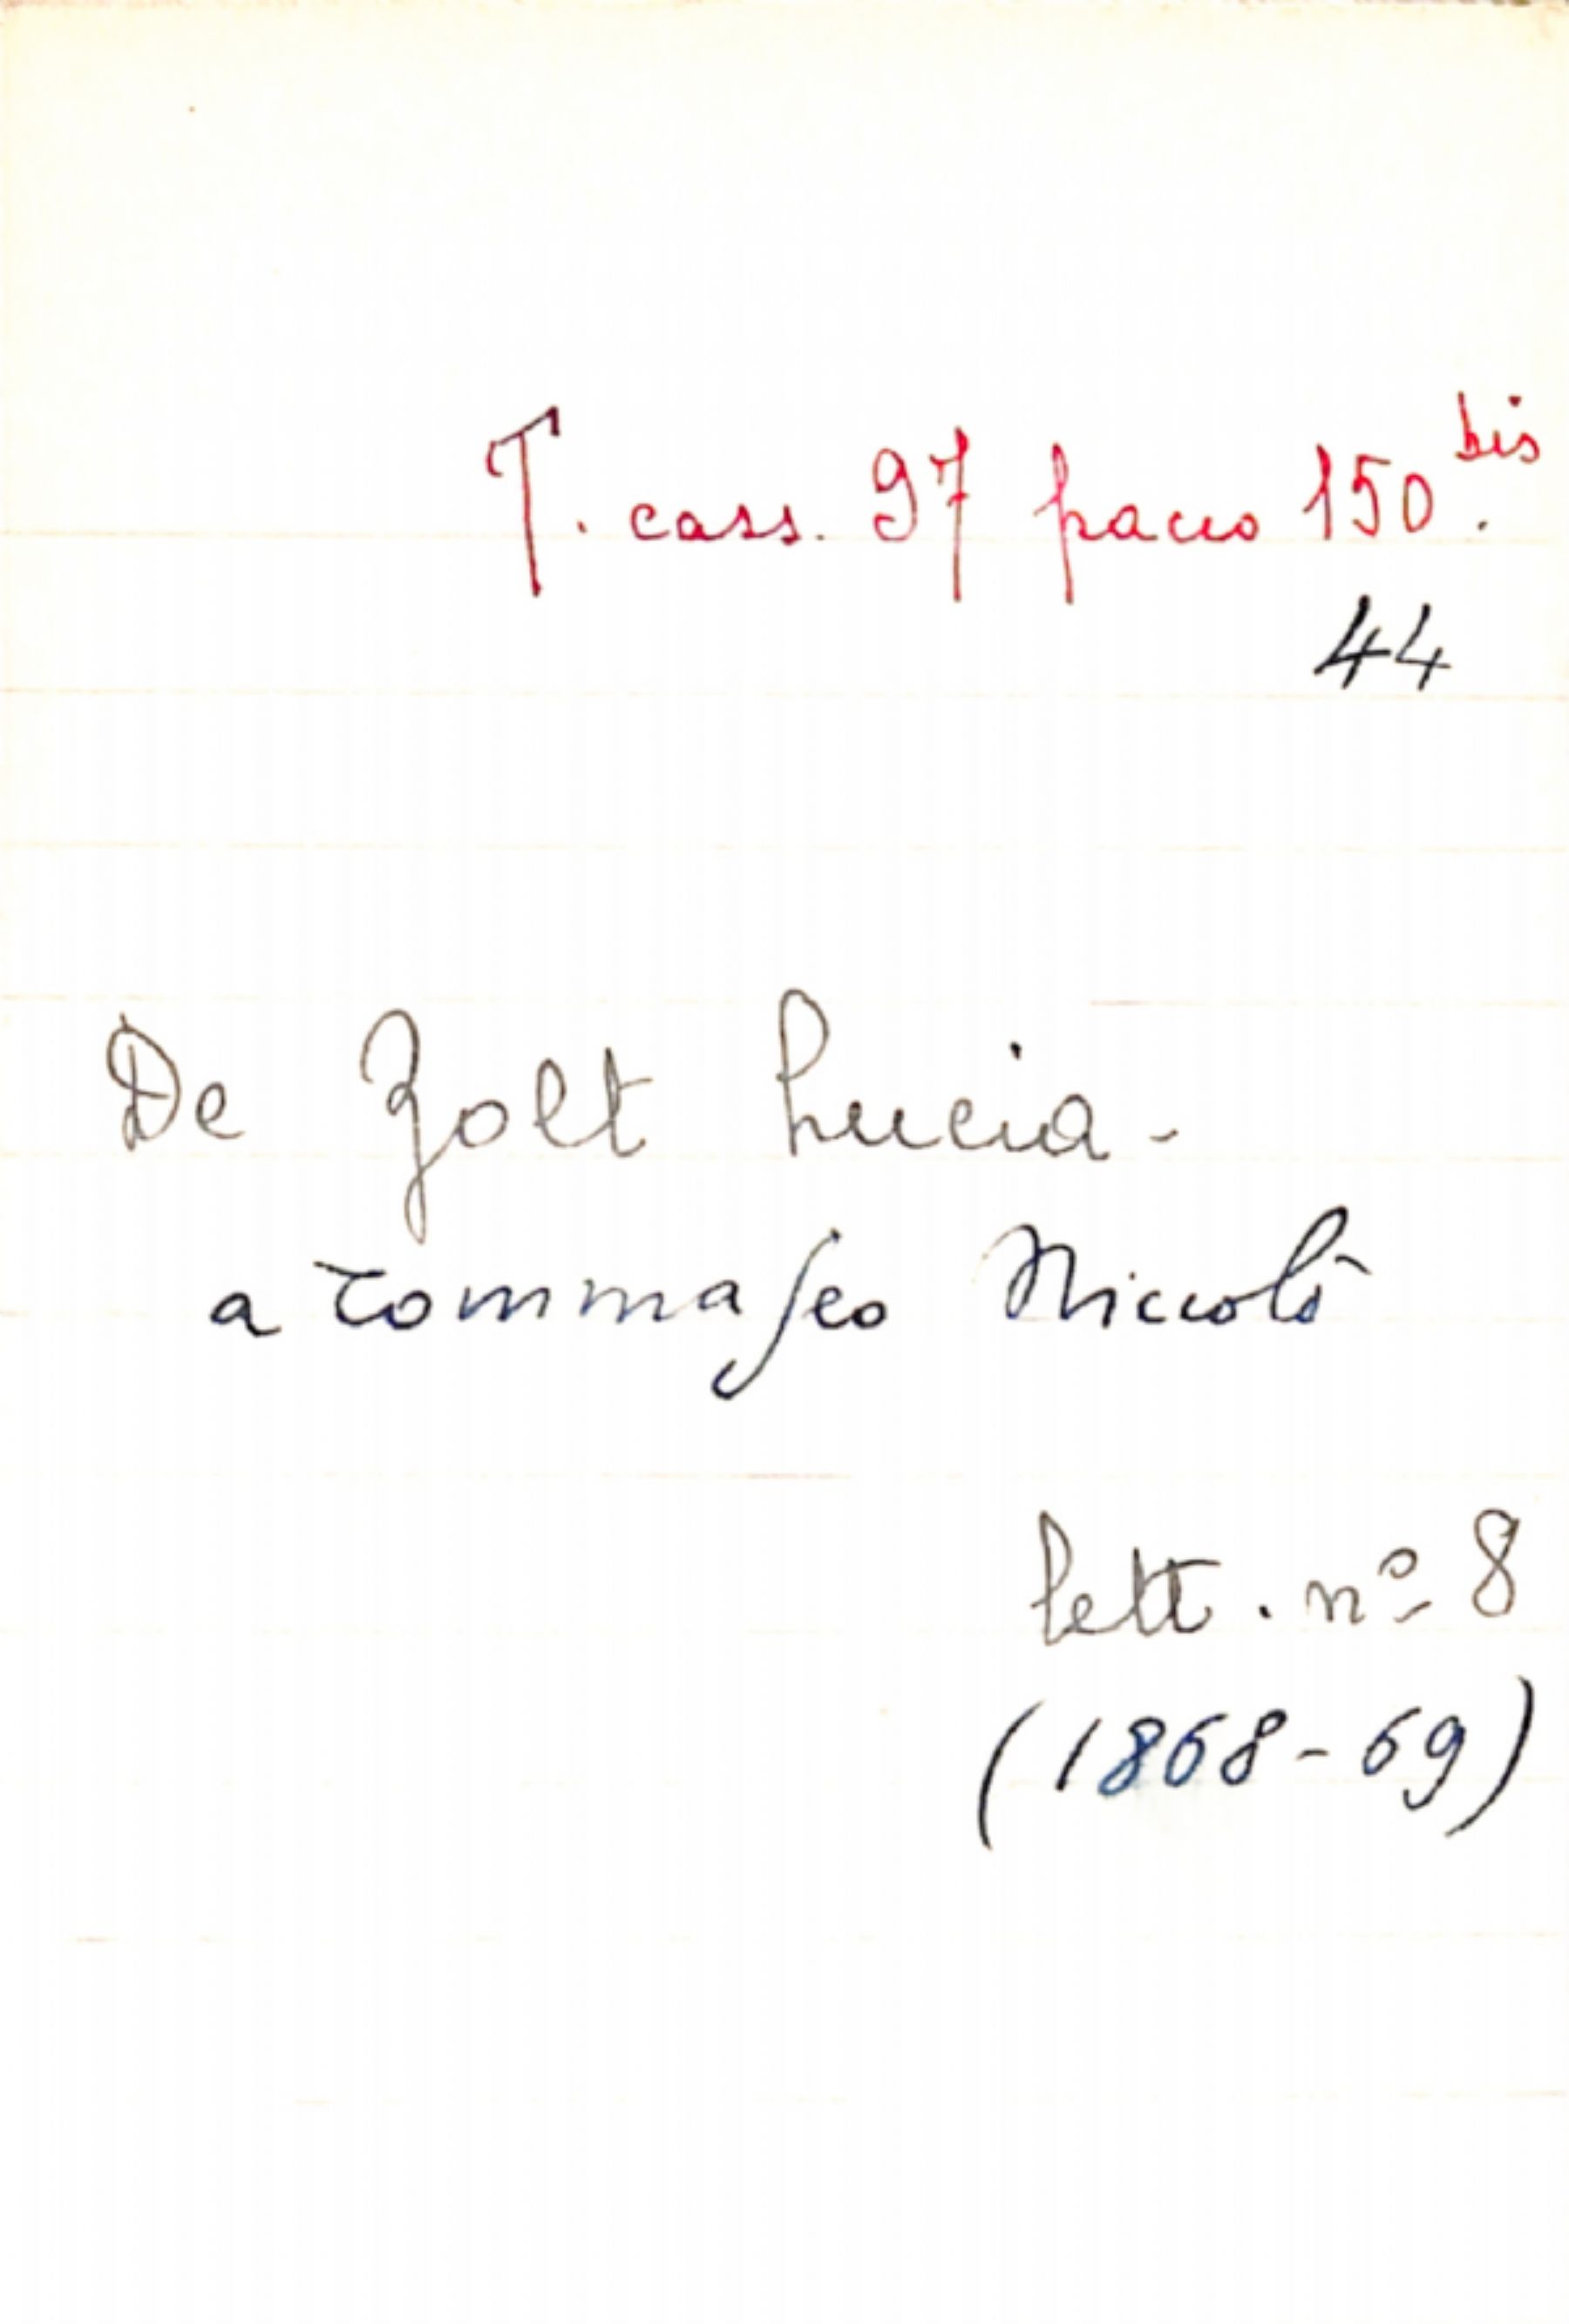 T. cass. 97 pacco 150 bis.
44
De Zolt Lucia -
a Tommaseo Niccolò
lett. nº 8
(1868-69)